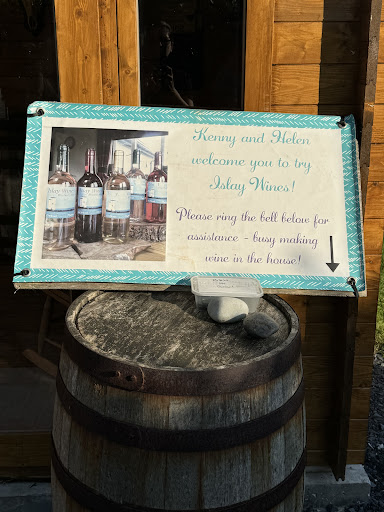 Kenny and Helen
welcome you to try
Islay Wines!
Please ring the bell below for
assistance - busy making
wine in the house!